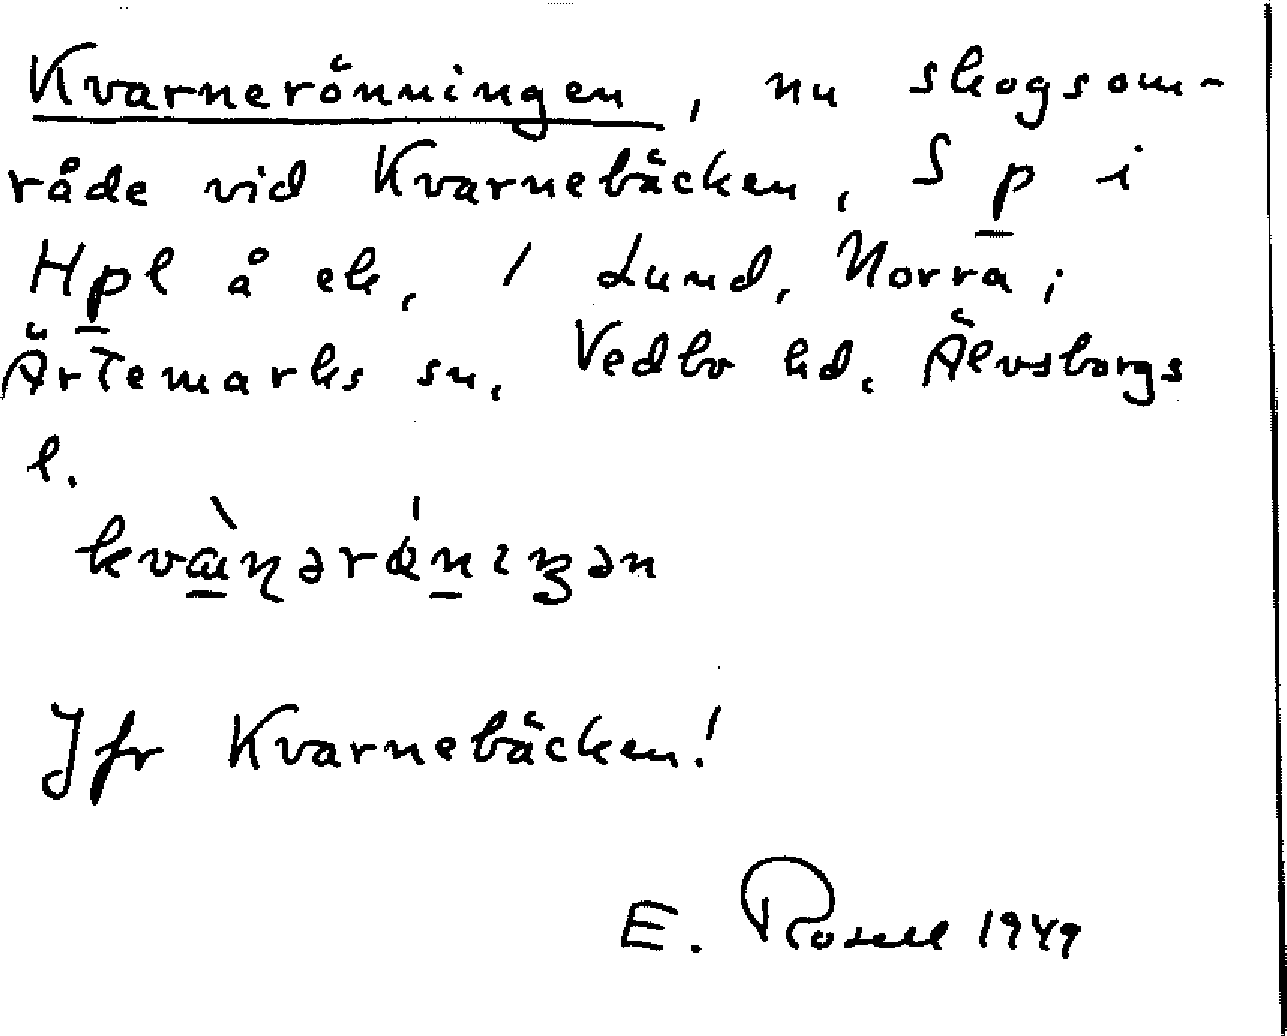 Kvarnerönningen, nu skogsom-
råde vid Kvarnebäcken, S p i
Hpl å ek, 1 Lund, Norra;
Ärtemarks sn, Vedbo hd, Älvsborgs
l.
Jfr Kvarnebäcken!
E. Rosell 1949